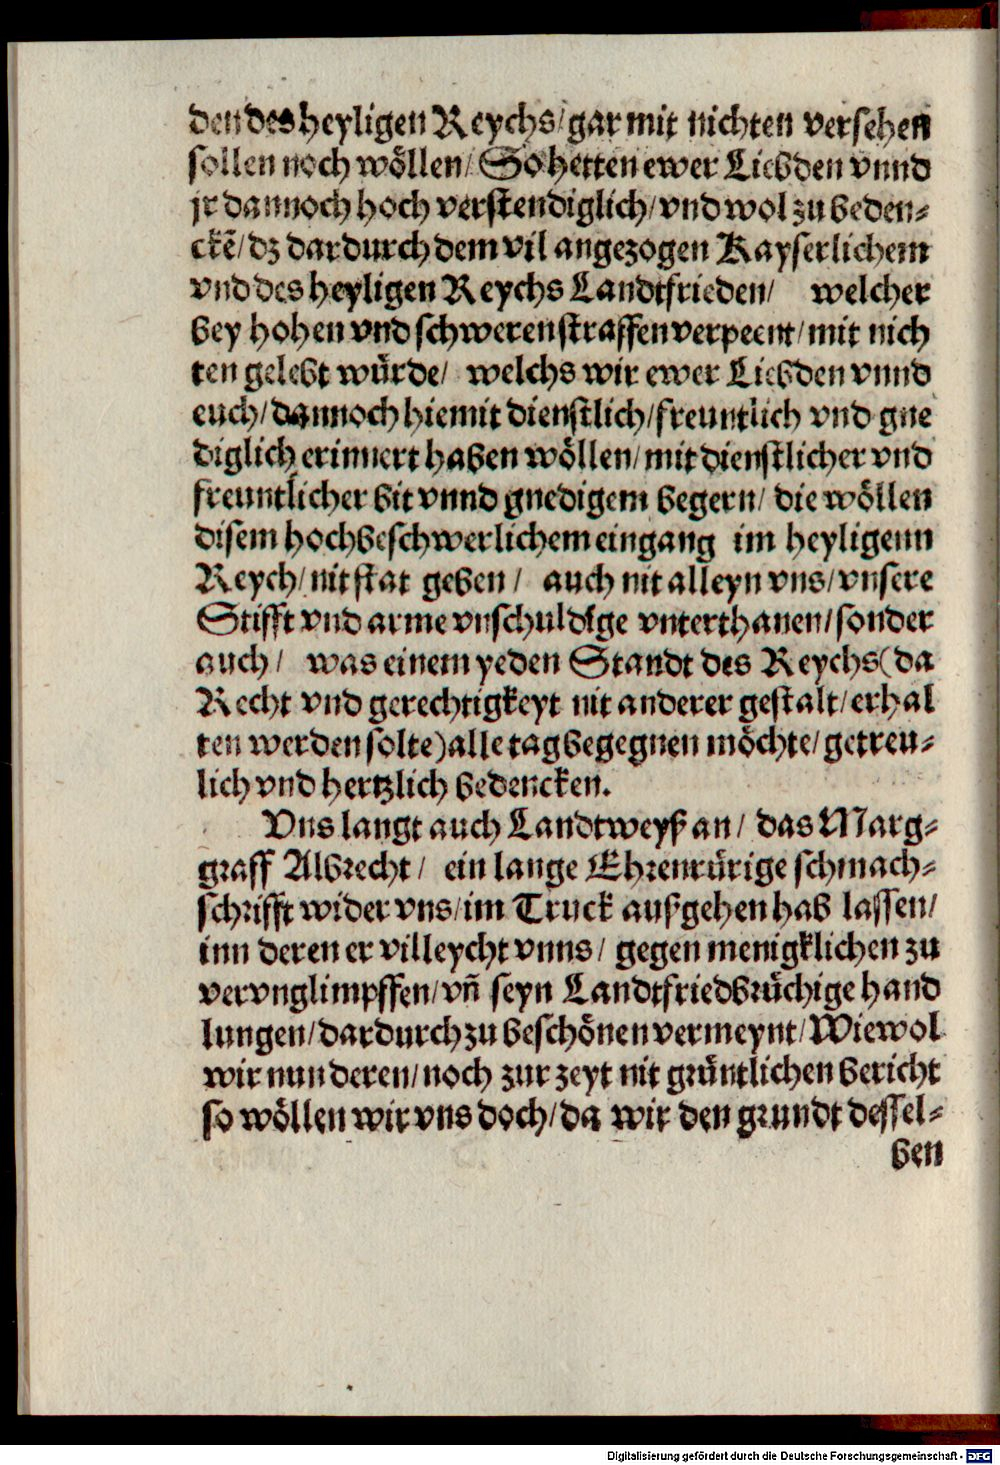 den des heyligen Reychs/ gar mit nichten versehen
sollen noch wöllen/ So hetten ewer Liebden vnnd
jr dannoch hoch verstendiglich/ vnd wol zu beden-
ckē/ dz dardurch dem vil angezogen Kayserlichem
vnd des heyligen Reychs Landtfrieden/ welcher
bey hohen vnd schweren straffen verpeent/ mit nich
ten gelebt würde/ welchs wir ewer Liebden vnnd
euch/ dannoch hiemit dienstlich/ freuntlich vnd gne
diglich erinnert haben wöllen/ mit dienstlicher vnd
freuntlicher bit vnnd gnedigem begern/ die wöllen
disem hochbeschwerlichem eingang im heyligenn
Reych/ nit stat geben/ auch nit alleyn vns/ vnsere
Stifft vnd arme vnschuldige vnterthanen/ sonder
auch/ was einem yeden Standt des Reychs (da
Recht vnd gerechtigkeyt nit anderer gestalt/ erhal
ten werden solte) alle tag begegnen möchte/ getreu-
lich vnd hertzlich bedencken.
Vns langt auch Landtweyß an/ das Marg-
graff Albrecht/ ein lange Ehrenrürige schmach-
schrifft wider vns/ im Truck außgehen hab lassen/
inn deren er villeycht vnns/ gegen menigklichen zu
vervnglimpffen/ vñ seyn Landtfriedbrüchige hand
lungen/ dardurch zu beschönen vermeynt/ Wiewol
wir nun deren/ noch zur zeyt nit grüntlichen bericht
so wöllen wir vns doch/ da wir den grundt dessel-
ben
Digitalisierung gefördert durch die Deutsche Forschungsgemeinschaft - DFG